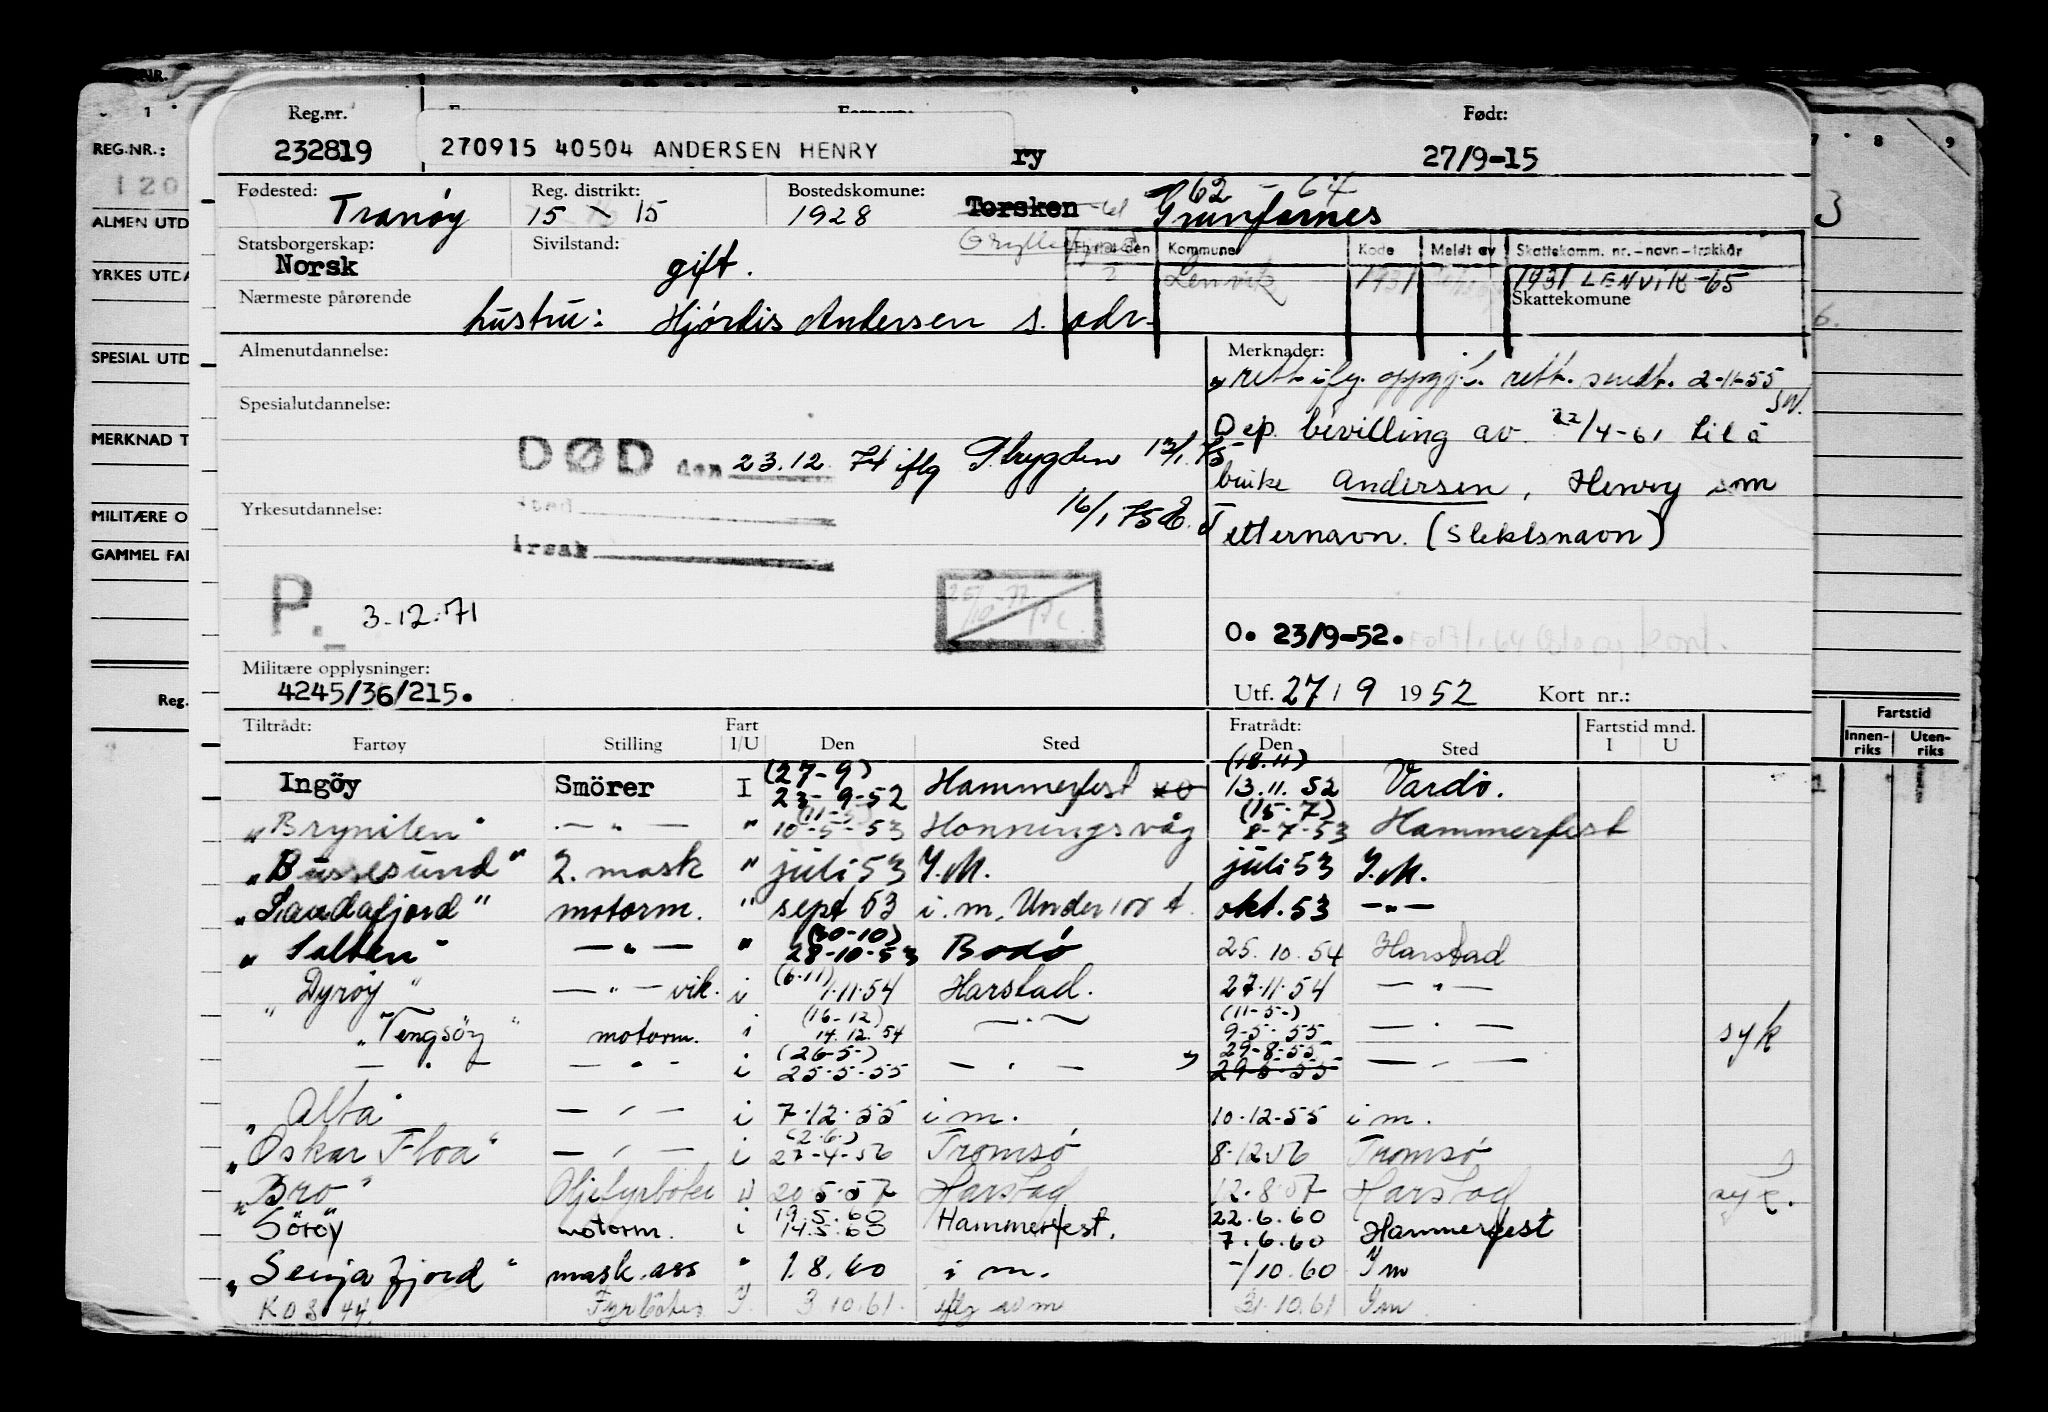 NR.
1
REG.NR.:
120
ALMEN UTD
YRKES UTDA
SPECIAL UTD
MERKNAD T
MILITÆRE O
GAMMEL FAR
Reg.
Reg.nr. Født:
232819 270915 40504 ANDERSEN HENRY ry 27/9-15
Fødested: Reg. distrikt: Bostedskomune: 62 - 64
Tranöy 15 - 15 1928 Torsken
Statsborgerskap: Sivilstand: Kommune Kode Meldt av Skattekomm. nr.-navn-trekkår
Norsk gift. Lenvik 1931 1931 LENVIK -65
Skattekomune
Nærmeste pårørende
hustru: Hjördis Andersen s. adr.
Almenutdannelse: Merknader:
rett. sendt. 2-11-55
Spesialutdannelse:
Dep. bevilling av 22/4-61 til å
DØD den 23.12. 74 iflg Trygden 13/1.75
bruke Andersen, Henry som
Yrkesutdannelse: sted 16/1 75
etternavn. (slektsnavn)
årsak
P. 3-12-71
O. 23/9-52.
Militære opplysninger:
4245/36/215. Utf. 27/9 1952 Kort nr.:
Tiltrådt: Fart Fratrådt: Fartstid mnd. Fartstid
Fartøy Stilling I/U Den Sted Den Sted I U Innen-riks Uten-riks
Ingöy Smörer I (27-9) 23-9-52 Hammerfest (18.11) 13.11.52 Vardö.
"Brynilen" — " — " (11-5) 10-5-53 Honningsvåg (15-7) 8-7-53 Hammerfest
"Bussesund" 2. mask " juli 53 I.M. juli 53 I.M.
"Sandafjord" motorm. " sept 53 i.m. Under 100 t. okt. 53 — " —
"Salten" — " — " (30-10) 28-10-53 Bodö 25.10.54 Harstad
"Dyröy" — " — vik. i (6.11) 1.11.54 Harstad. 27.11.54 — " —
"Vengsöy" motorm. i (16-12) 14.12.54 — " — (11-5-) 9-5-55 — " — syk
— " — — " — i (26-5-) 25-5-55 — " — 29-8-55 29-5-55 — " —
"Alta" — " — i 7-12-55 i m. 10-12-55 i m.
"Oskar Floa" — " — i (2.6.) 27-4-56 Tromsö 8-12 56 Tromsö
"Bro" Oljefyrböter U 20-5-57 Harstad 12.8.57 Harstad syk.
"Söröy" motorm. i 19.5.60 14.5.60 Hammerfest. 22.6.60 7.6.60 Hammerfest
"Senjafjord" mask. ass " 1.8.60 i m. -/10.60 I m
KOS 44. Fyrböter I. 3.10.61. iflg 31.10.61 I m